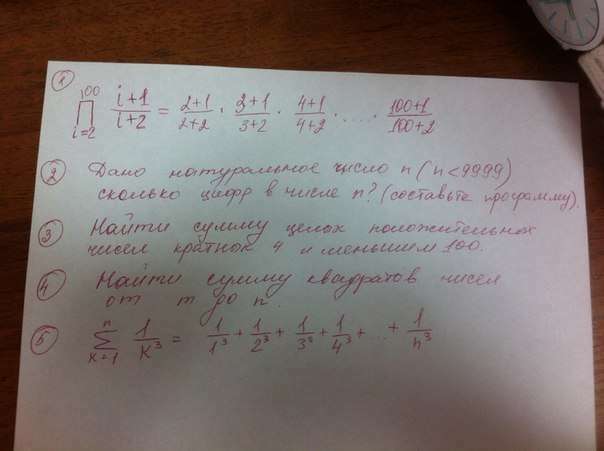 ① ∏_{i=2}^{100} (i+1)/(i+2) = (2+1)/(2+2) · (3+1)/(3+2) · (4+1)/(4+2) · .... · (100+1)/(100+2)
② Дано натуральное число n (n<9999)
сколько цифр в числе n? (составьте программу).
③ Найти сумму целых положительных
чисел кратных 4 и меньших 100.
④ Найти сумму квадратов чисел
от m до n.
⑤ ∑_{k=1}^{n} 1/k³ = 1/1³ + 1/2³ + 1/3³ + 1/4³ + ... + 1/n³